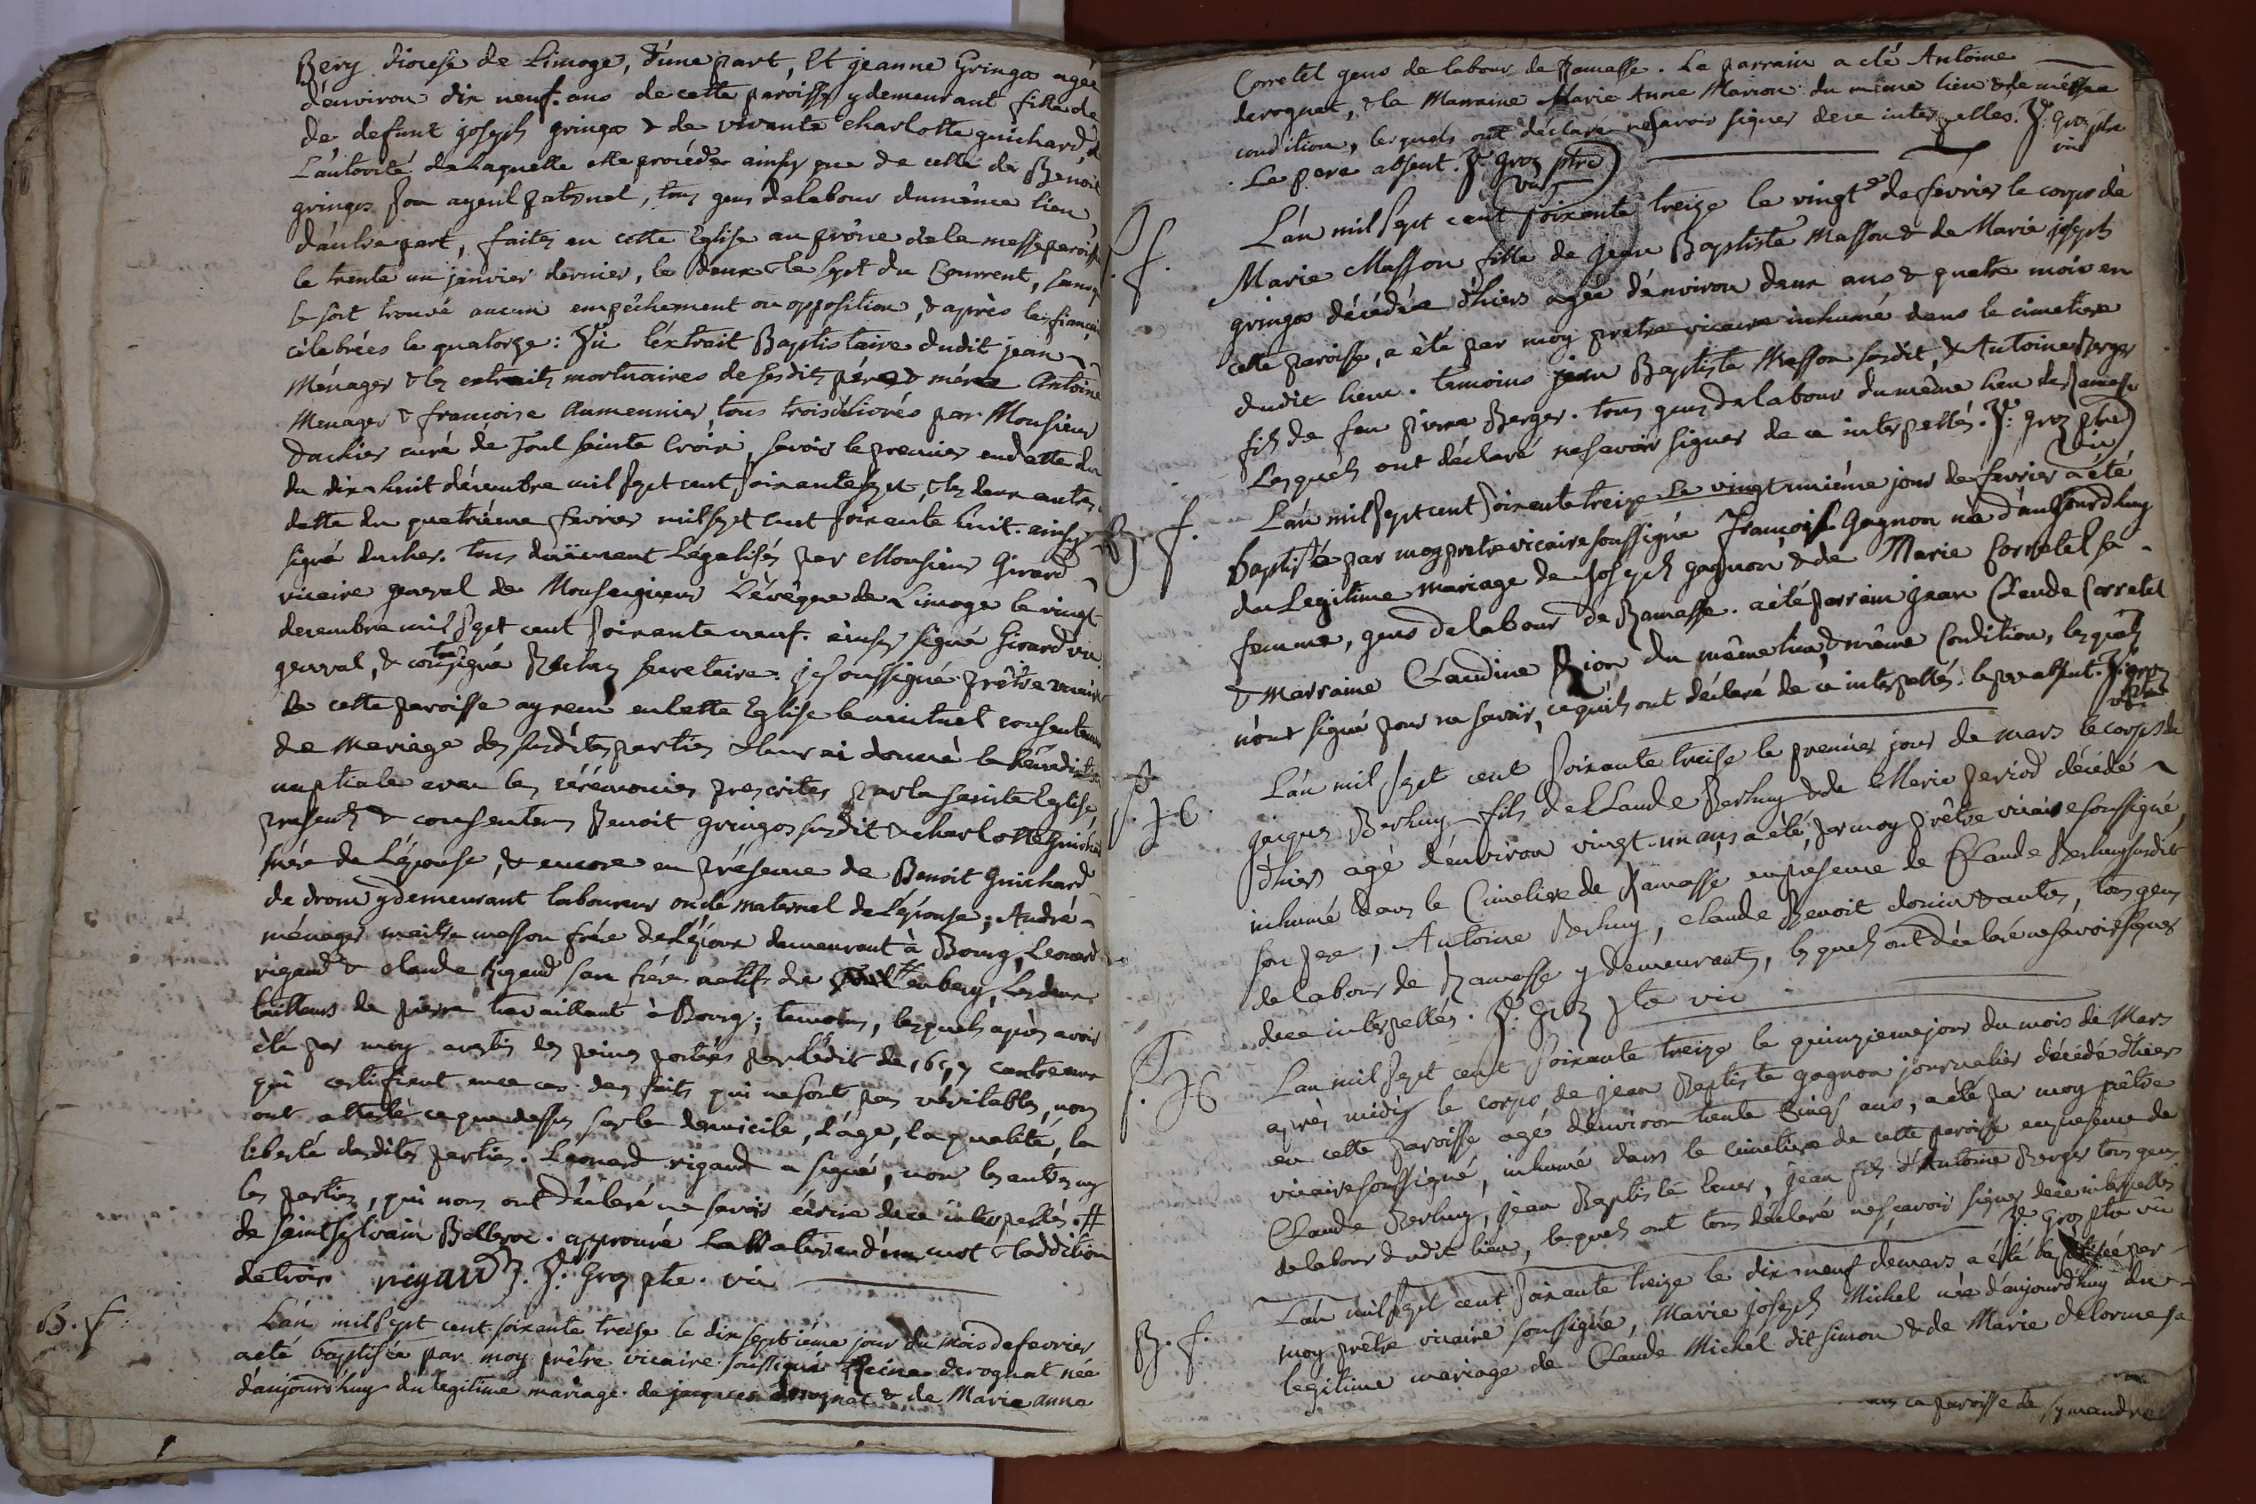 Bery diocese de Limoge, d'une part, Et jeanne Gringoz agée
d'environ dix neuf ans de cette paroisse y demeurant fille de
de defunt joseph gringoz & de vivante charlotte guichard, de
L'autorité de Laquelle elle procéde ainsy que de celle de Benoit
gringoz son ayeul paternel, tous gens de labour du même lieu
d'autre part, faites en cette Eglise au prône de la messe paroiss
le trente un janvier dernier, le deux & le sept du Courrent, sans q
se soit trouvé aucun empêchement ou opposition, & après les fiançai
célebrées le quatorze: Vû l'éxtrait Baptistaire dudit jean
Ménager & les extraits mortuaires de sesdits pére & mére Antoine
Menager & françoise Aumennier, tous trois délivrés par Monsieur
Duchier curé de Toul sainte Croix, savoir le premier en datte du
du dix huit décembre mil sept cent soixante sept, & les deux autres
datte du quatriéme fevrier mil sept cent soixante huit. ainsy
signé ducher. tous duëment Légalisés par Monsieur Girard
vicaire general de Monseigneur L'évêque de Limoge le vingt
decembre mil sept cent soixante neuf. ainsy signé Girard vic.
general, & contresigné secretaire. je soussigné prêtre vicaire
de cette paroisse ay reçu en cette Eglise le mutuel consentem
de mariage des susdites parties & leur ai donné la bénédiction
nuptiale avec les cérémonies prescrites par la sainte Eglise,
presents & consentens Benoit gringoz susdit & charlotte guichard
mére de L'épouse, & encore en présence de Benoit Guichard
de drom y demeurant laboureur oncle maternel de L'épouse; André
ménager maitre masson frére de L'époux demeurant à Bourg, Leonard
rigaud & claude Rigaud son frére natifs de en bery, Les deux
tailleurs de pierre travaillant à Bourg; temoins, lesquels après avoir
été par moy avertis des peines portées par L'édit de 1697 contre ceux
qui certifient en ce cas des faits qui ne sont pas véritables, nous
ont attesté ce que dessus sur le domicile, L'âge, la qualité, la
liberté desdites parties. Leonard rigaud a signé, non les autres ny
les parties, qui nous ont déclaré ne savoir écrire de ce interpellés. #
de saint sylvain Bellegre. approuvé la rature d'un mot & l'addition
de trois. rigaud. J: Groz ptre. vic
B. f.
L'an mil sept cent soixante treize le dix septiéme jour du mois de fevrier
a été baptisée par moy prêtre vicaire soussigné Reine deroguat née
d'aujourd'huy du legitime mariage de jacques deroguat & de Marie anne
Corretel gens de labour de Ramasse. Le parrain a eté Antoine
deroguat, & la Marraine Marie Anne Marion du même lieu & de même
condition, lesquels ont déclaré ne savoir signer de ce interpellés. J: groz ptre
vic
Le pere absent. J: groz ptre
vic
S. f.
L'an mil sept cent soixante treize le vingt de fevrier le corps de
Marie Masson fille de jean Baptiste Masson & de Marie joseph
gringoz décédée d'hier agée d'environ deux ans & quatre mois en
cette paroisse, a été par moy prêtre vicaire inhumé dans le cimetiere
dudit lieu. temoins jean Baptiste Masson susdit, & Antoine Berger
fils de feu pierre Berger. tous gens de labour du même lieu de Ramasse
Lesquels ont déclaré ne savoir signer de ce interpellés. J: groz ptre
vic
B. f.
L'an mil sept cent soixante treize le vingt uniéme jour de fevrier a été
baptisée par moy pretre vicaire soussigné françoise Gagnon née d'aujourd'huy
du Legitime mariage de joseph gagnon & de Marie Corretel sa
femme, gens de labour de Ramasse. a été parrain jean Claude Corretel
& Marraine Claudine Rion du même lieu, & même Condition, lesquels
n'ont signé pour ne savoir, ce qu'ils ont déclaré de ce interpellés. le pere absent. J: groz
ptre
L'an mil sept cent soixante treise le premier jour de mars le corps de
jacques Berthuy fils de Claude Berthuy & de Marie Period décédé
d'hier agé d'environ vingt-un ans a été, par moy prêtre vicaire soussigné
inhumé dans le Cimetiere de Ramasse en presence de Claude Berthuy susdit
son pere, Antoine Berthuy, claude Benoit donin & autres, tous gens
de labour de Ramasse y demeurants, lesquels ont déclaré ne savoir signer
de ce interpellés. J: Groz ptre vic
L'an mil sept cent soixante treize le quinzieme jour du mois de Mars
après midy le corps de jean Baptiste gagnon journalier décédé d'hier
en cette paroisse agé d'environ trente cinq ans, a été par moy prêtre
vicaire soussigné, inhumé dans le cimetiere de cette paroisse en presence de
Claude Berthuy, jean Baptiste, jean fils d'Antoine Berger tous gens
de labour dudit lieu, lesquels ont tous déclaré ne sçavoir signer de ce interpellés
J: Groz ptre vic
B. f.
L'an mil sept cent soixante treize le dix neuf de mars a été baptisée par
moy prêtre vicaire soussigné, Marie joseph Michel née d'aujourd'huy du
legitime mariage de Claude Michel dit simon & de Marie delorme sa
paroisse de symandre